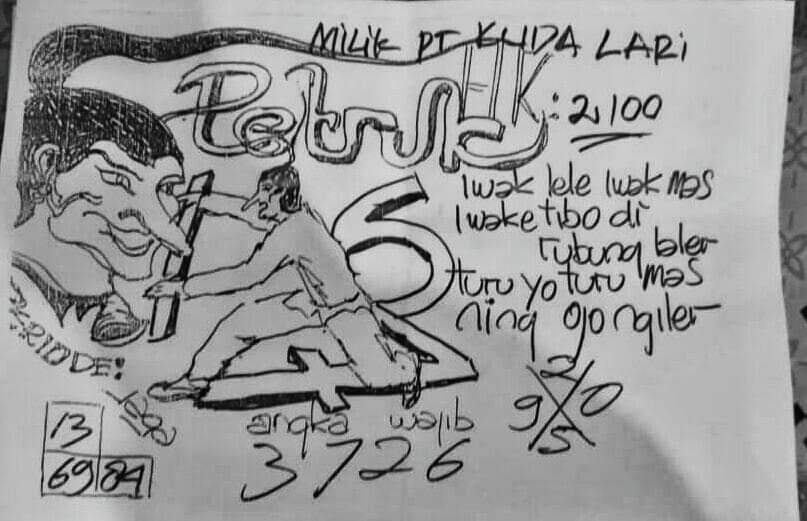 MILIK PT KUDA LARI
Petruk HK: 2,100
Iwak lele Iwak mas
Iwake tibo di
rubung bler
turu yo turu mas
ning ojo ngiler
PERIODE:
angka wajib
3726
13
69 84
2
9 X 0
5